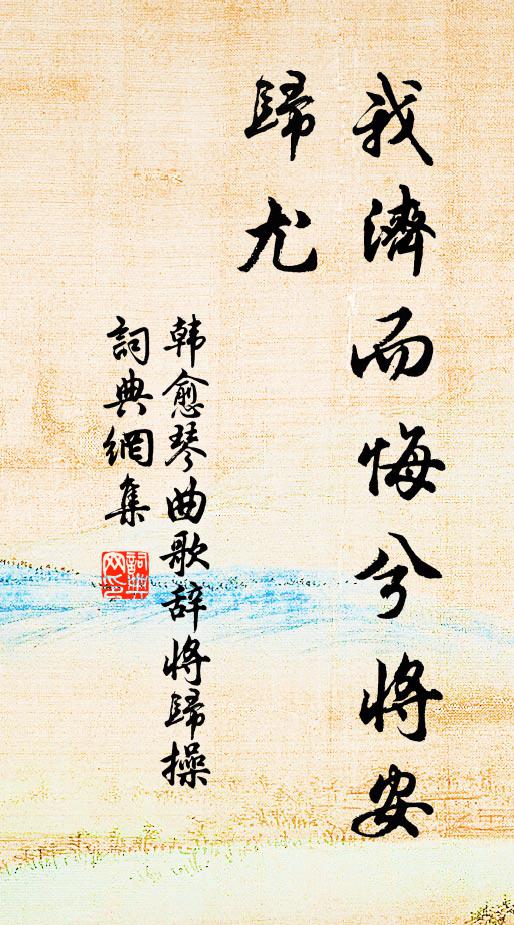 我濟而悔兮將安
歸尤
韩愈琴曲歌辞將歸操
詞典網集